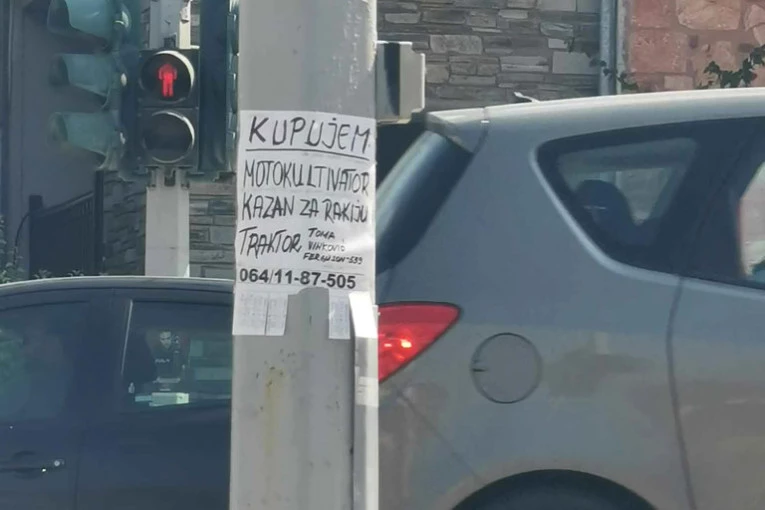 KUPUJEM
MOTOKULTIVATOR
KAZAN ZA RAKIJU
TRAKTOR TOMA
VINKOVIĆ
FERGUZON-539
064/11-87-505